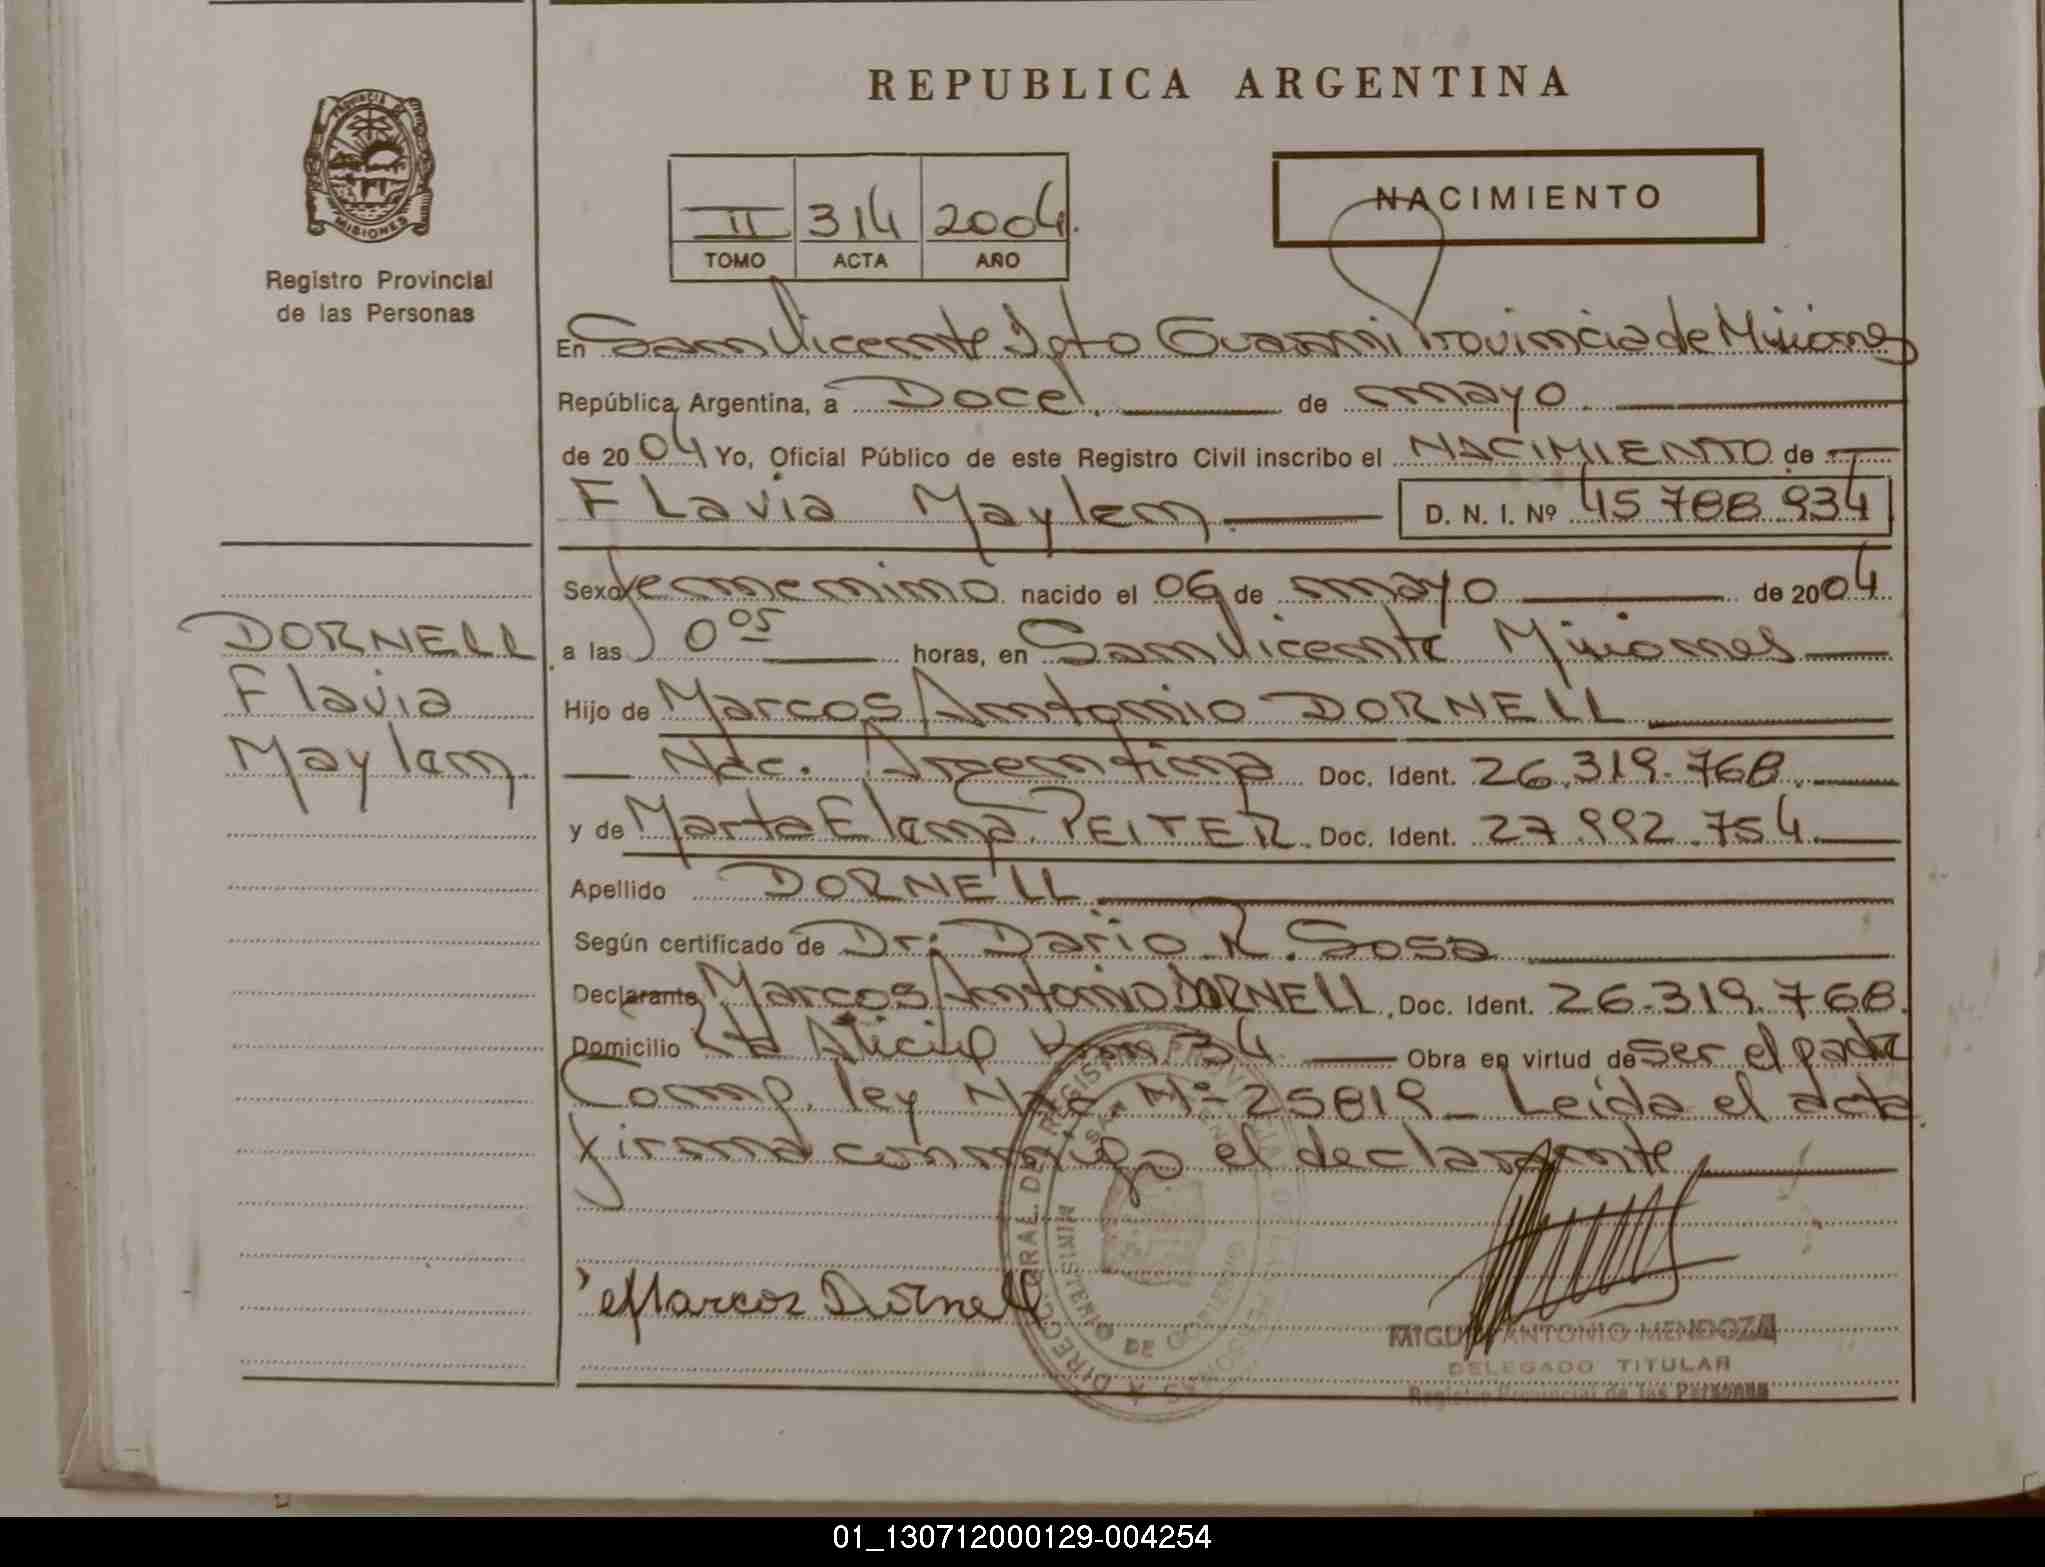 REPUBLICA ARGENTINA
PROVINCIA DE
MISIONES
Registro Provincial
de las Personas
II 314 2004.
TOMO ACTA AÑO
NACIMIENTO
En San Vicente Dpto Guarani Provincia de Misiones
República Argentina, a Doce. de mayo
de 2004 Yo, Oficial Público de este Registro Civil inscribo el NACIMIENTO de
Flavia Maylen. D. N. I. Nº 45 788 934
Sexo femenino nacido el 06 de mayo de 2004
a las 0 05 horas, en San Vicente Misiones
DORNELL
Flavia
Maylen.
Hijo de Marcos Antonio DORNELL
Nac. Argentina Doc. Ident. 26.319.768.
y de Marta Elena PEITER. Doc. Ident. 27.992.754
Apellido DORNELL
Según certificado de Dr: Dario R. Sosa
Declarante Marcos Antonio DORNELL, Doc. Ident. 26.319.768.
Domicilio Alicia Km. 34 Obra en virtud de ser el padre
Comp. ley Nac. Nº 25819_ Leida el acta
firma conmigo el declarante
Marcos Dornell
MINISTERIO DE GOBIERNO
MIGUEL ANTONIO MENDOZA
DELEGADO TITULAR
Registro Provincial de las Personas
01_130712000129-004254